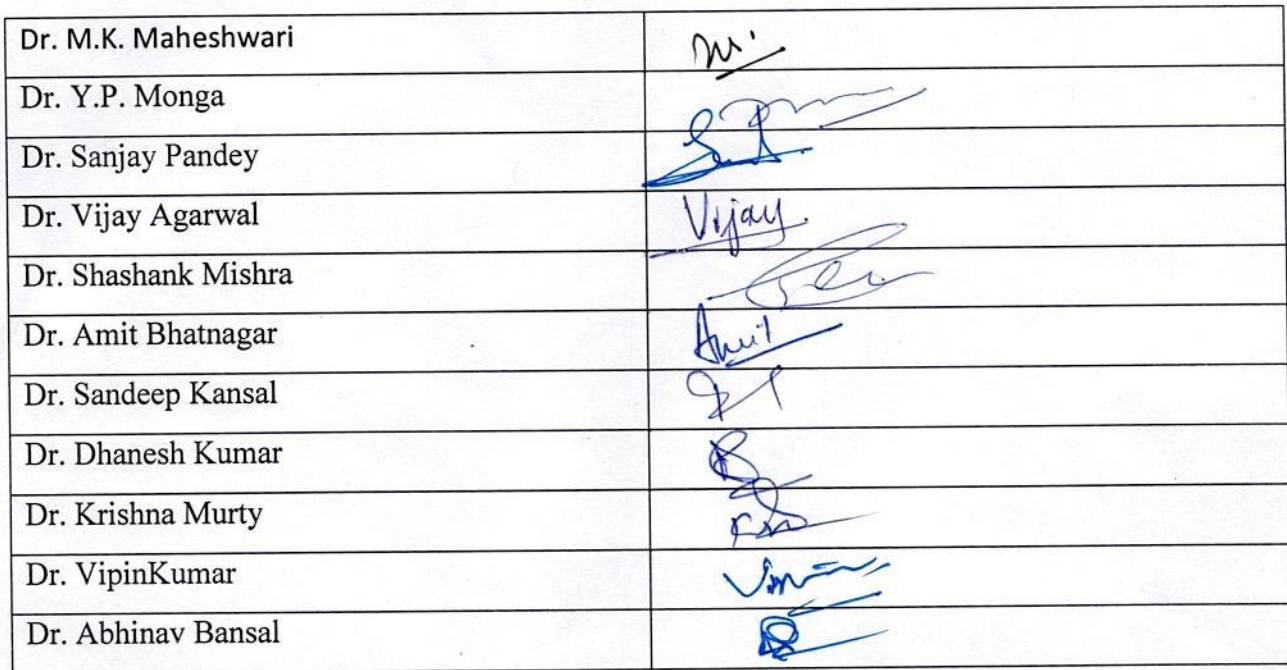 Dr. M.K. Maheshwari
Dr. Y.P. Monga
Dr. Sanjay Pandey
Dr. Vijay Agarwal Vijay
Dr. Shashank Mishra
Dr. Amit Bhatnagar Amit
Dr. Sandeep Kansal
Dr. Dhanesh Kumar
Dr. Krishna Murty
Dr. VipinKumar
Dr. Abhinav Bansal